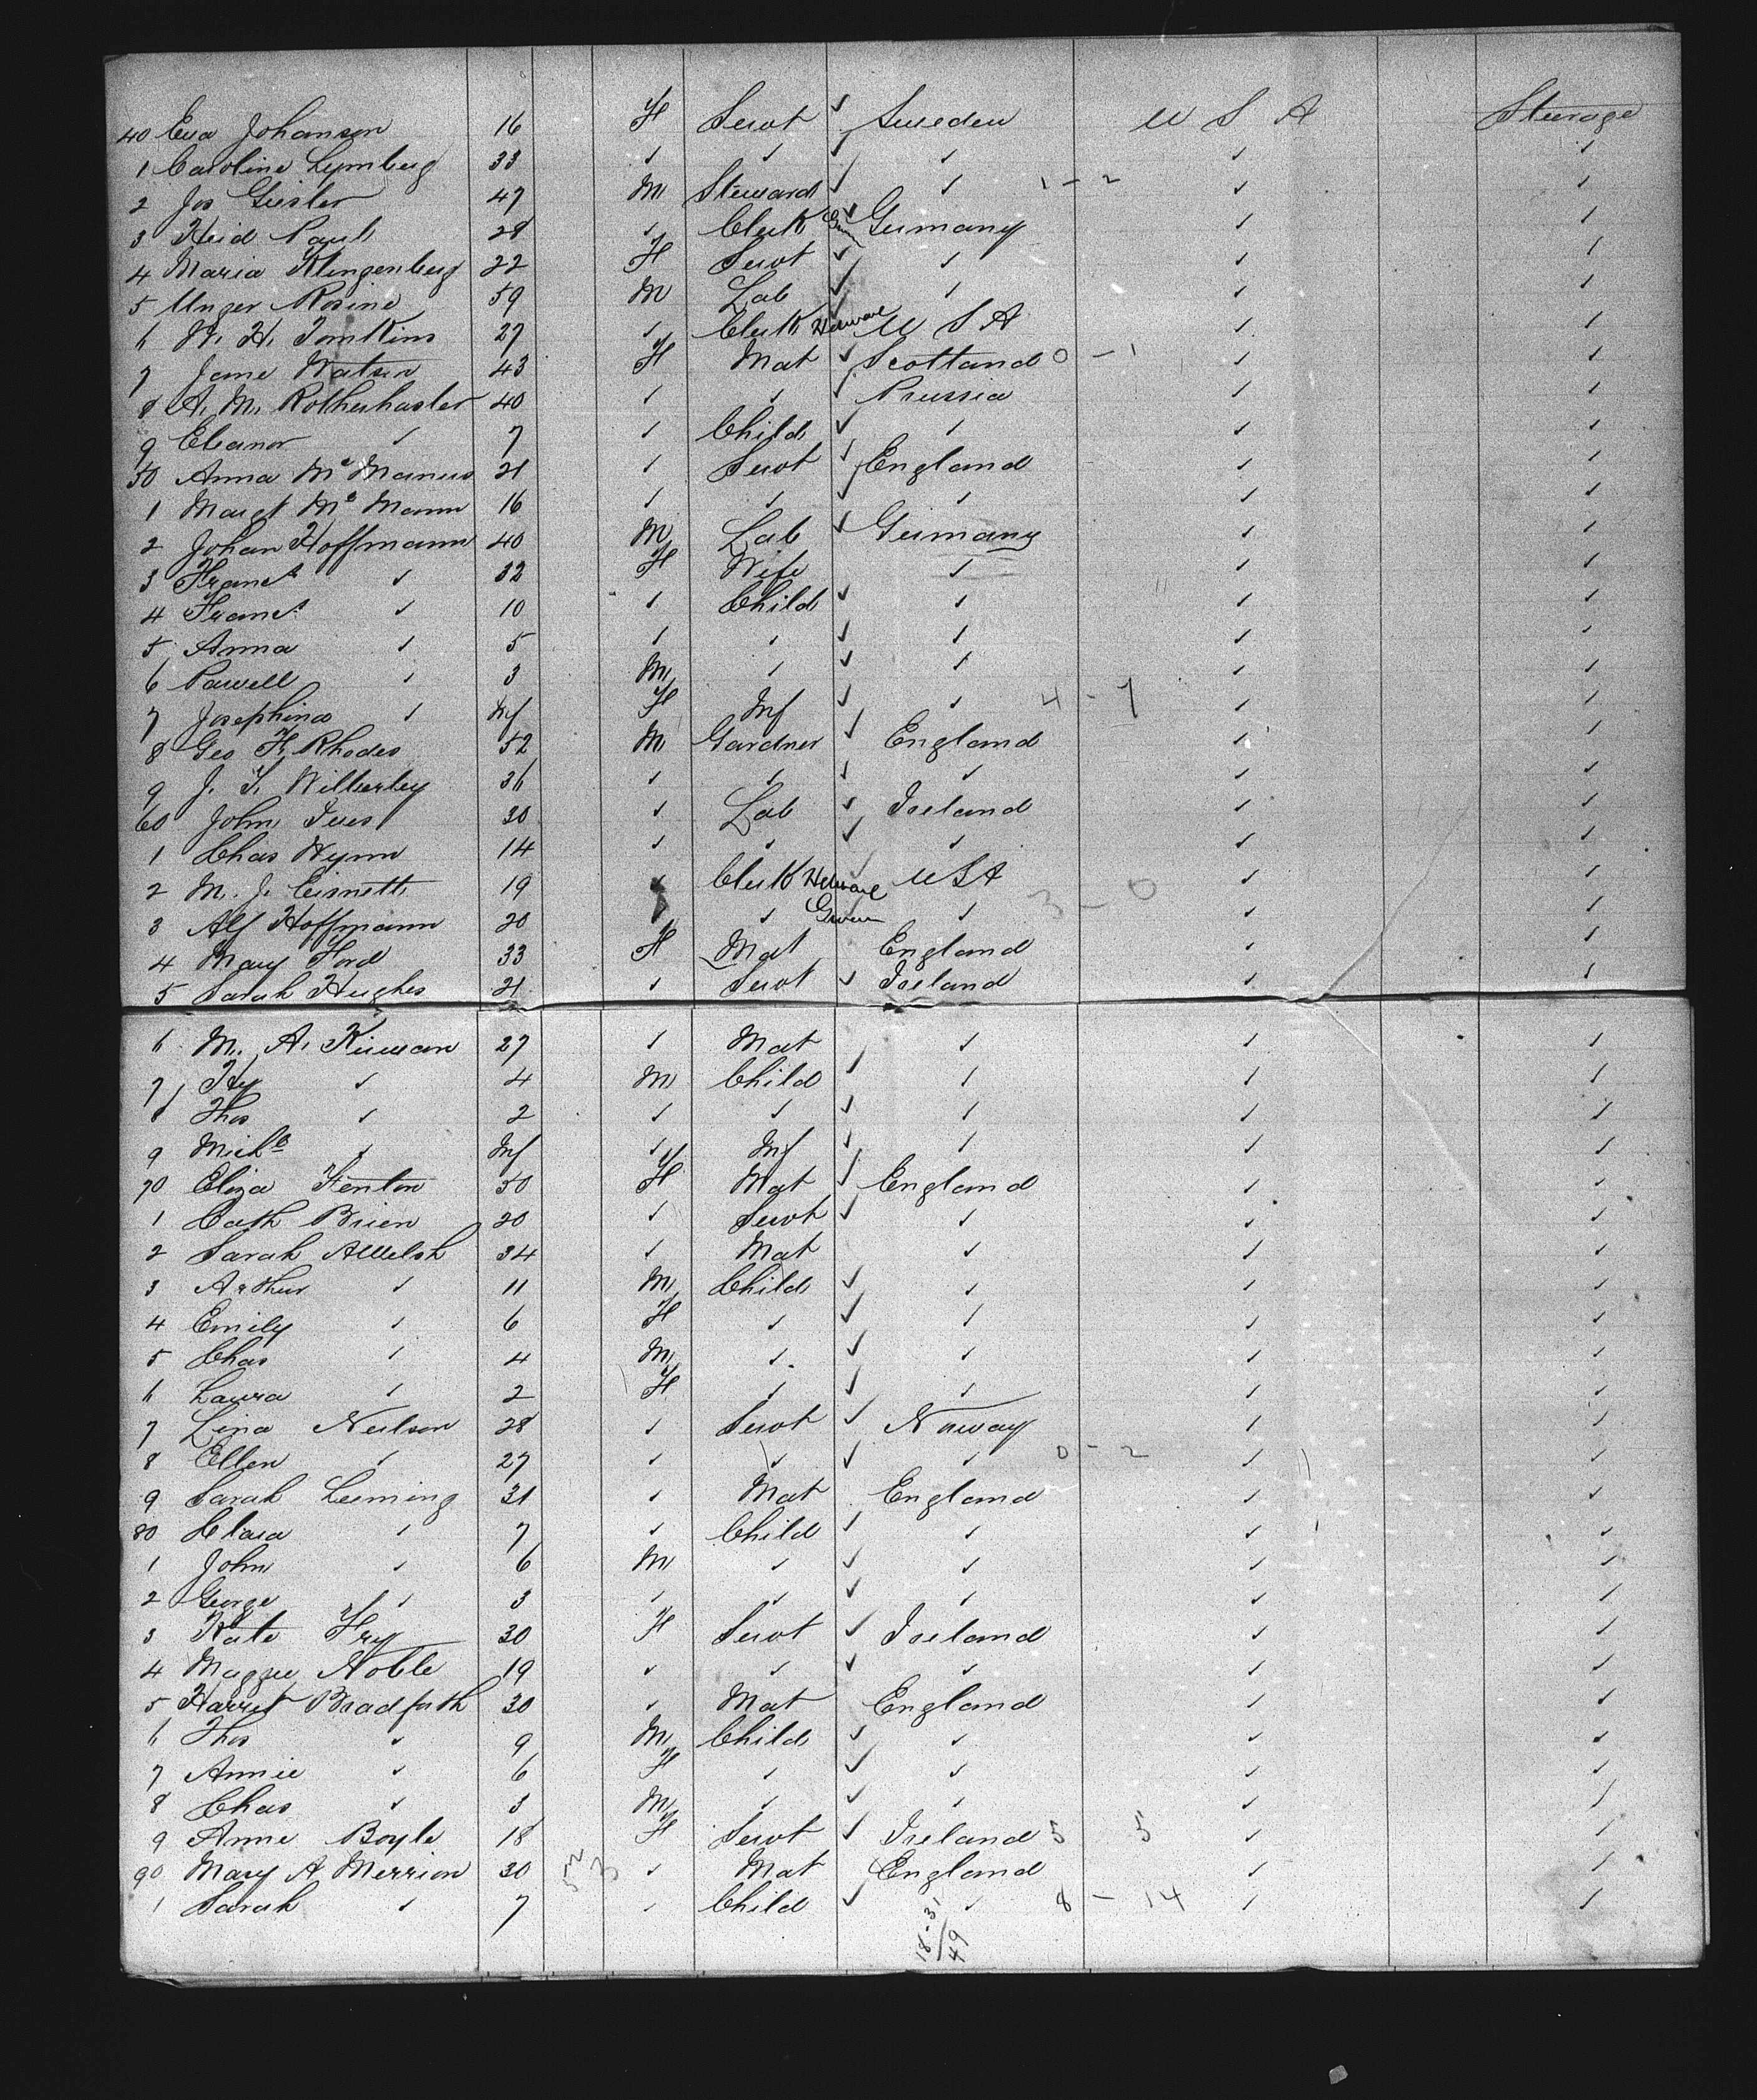 40 Eva Johanson 16 F Servt ✓ Sweden U S A Steerage
1 Caroline Lymberg 33 ✓ ✓ ✓ ✓ ✓ ✓
2 Jos Giesler 47 M Steward ✓ ✓ 1 - 2 ✓ ✓
3 Heid Paul 28 ✓ Clerk ✓ Germany ✓ ✓
4 Maria Klingenberg 22 F Servt ✓ ✓ ✓ ✓
5 Unger Rosine 59 M Lab ✓ ✓ ✓ ✓
6 W. H. Tomkins 27 ✓ Clerk ✓ U S A ✓ ✓
7 Jane Watson 43 F Mat ✓ Scotland 0 - 1 ✓ ✓
8 A. M. Rotherhasler 40 ✓ ✓ ✓ Prussia ✓ ✓
9 Eleanor ✓ 7 ✓ Child ✓ ✓ ✓ ✓
50 Anna McManus 21 ✓ Servt ✓ England ✓ ✓
1 Margt McMann 16 ✓ ✓ ✓ ✓ ✓ ✓
2 Johan Hoffmann 40 M Lab ✓ Germany ✓ ✓
3 Franct ✓ 32 F Wife ✓ ✓ ✓
4 Franct ✓ 10 ✓ Child ✓ ✓ ✓ ✓
5 Anna ✓ 5 ✓ ✓ ✓ ✓ ✓ ✓
6 Pawell ✓ 3 M ✓ ✓ ✓ ✓ ✓
7 Josephina ✓ Inf F Inf ✓ ✓ 4 - 7 ✓ ✓
8 Geo F. Rhodes 52 M Gardner ✓ England ✓ ✓
9 J. T. Wilberley 36 ✓ ✓ ✓ ✓ ✓ ✓
60 John Ives 20 ✓ Lab ✓ Ireland ✓ ✓
1 Chas Wynn 14 ✓ ✓ ✓ ✓ ✓ ✓
2 M. J. 19 ✓ Clerk ✓ U S A 3 - 0 ✓ ✓
3 Alf Hoffmann 20 ✓ ✓ ✓ ✓ ✓
4 Mary Ford 33 F Mat England ✓ ✓
5 Sarah Hughes 21 ✓ Servt ✓ Ireland ✓ ✓
6 M. A. Kirwan 27 ✓ Mat ✓ ✓ ✓
7 Hy ✓ 4 M Child ✓ ✓ ✓ ✓
8 Thos ✓ 2 ✓ ✓ ✓ ✓ ✓ ✓
9 Michl ✓ Inf ✓ Inf ✓ ✓ ✓ ✓
70 Eliza Fenton 50 F Mat ✓ England ✓ ✓
1 Cath Brien 20 ✓ Servt ✓ ✓ ✓ ✓
2 Sarah A Welsh 34 ✓ Mat ✓ ✓ ✓
3 Arthur ✓ 11 M Child ✓ ✓ ✓ ✓
4 Emily ✓ 6 F ✓ ✓ ✓ ✓ ✓
5 Chas ✓ 4 M ✓ ✓ ✓ ✓ ✓
6 Laura ✓ 2 F ✓ ✓ ✓ ✓ ✓
7 Lina Neilson 28 ✓ Servt ✓ Norway ✓ ✓
8 Ellen ✓ 27 ✓ ✓ ✓ ✓ 0 - 2 ✓ ✓
9 Sarah Leeming 31 ✓ Mat England ✓ ✓
80 Clara ✓ 7 ✓ Child ✓ ✓ ✓ ✓
1 John ✓ 6 M ✓ ✓ ✓ ✓ ✓
2 George ✓ 3 ✓ ✓ ✓ ✓ ✓ ✓
3 Kate Fry 30 F Servt ✓ Ireland ✓ ✓
4 Maggie Noble 19 ✓ ✓ ✓ ✓ ✓ ✓
5 Harriet Bradforth 30 ✓ Mat England ✓ ✓
6 Thos ✓ 9 M Child ✓ ✓ ✓ ✓
7 Annie ✓ 6 F ✓ ✓ ✓ ✓ ✓
8 Chas ✓ 3 M ✓ ✓ ✓ ✓ ✓
9 Anne Boyle 18 F Servt ✓ Ireland 5 5 ✓ ✓
90 Mary A Merrion 30 ✓ Mat England ✓ ✓
1 Sarah ✓ 7 ✓ Child ✓ ✓ 8 - 14 ✓ ✓
18 - 31
49